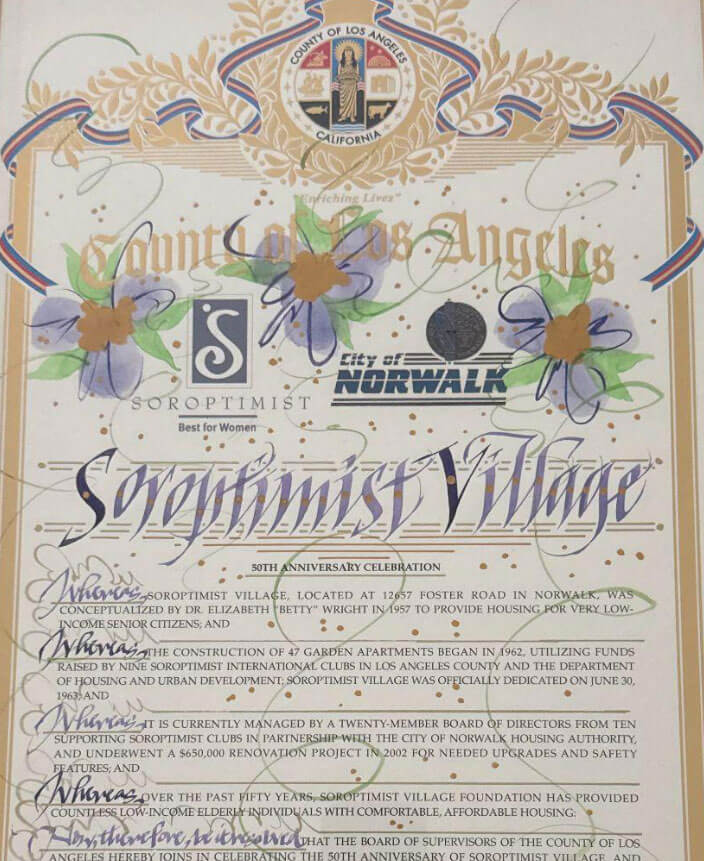 COUNTY OF LOS ANGELES
CALIFORNIA
"Enriching Lives"
County of Los Angeles
S
SOROPTIMIST
Best for Women
City of
NORWALK
Soroptimist Village
50TH ANNIVERSARY CELEBRATION
Whereas, SOROPTIMIST VILLAGE, LOCATED AT 12657 FOSTER ROAD IN NORWALK, WAS
CONCEPTUALIZED BY DR. ELIZABETH "BETTY" WRIGHT IN 1957 TO PROVIDE HOUSING FOR VERY LOW-
INCOME SENIOR CITIZENS; AND
Whereas, THE CONSTRUCTION OF 47 GARDEN APARTMENTS BEGAN IN 1962, UTILIZING FUNDS
RAISED BY NINE SOROPTIMIST INTERNATIONAL CLUBS IN LOS ANGELES COUNTY AND THE DEPARTMENT
OF HOUSING AND URBAN DEVELOPMENT; SOROPTIMIST VILLAGE WAS OFFICIALLY DEDICATED ON JUNE 30,
1963; AND
Whereas, IT IS CURRENTLY MANAGED BY A TWENTY-MEMBER BOARD OF DIRECTORS FROM TEN
SUPPORTING SOROPTIMIST CLUBS IN PARTNERSHIP WITH THE CITY OF NORWALK HOUSING AUTHORITY,
AND UNDERWENT A $650,000 RENOVATION PROJECT IN 2002 FOR NEEDED UPGRADES AND SAFETY
FEATURES; AND
Whereas, OVER THE PAST FIFTY YEARS, SOROPTIMIST VILLAGE FOUNDATION HAS PROVIDED
COUNTLESS LOW-INCOME ELDERLY INDIVIDUALS WITH COMFORTABLE, AFFORDABLE HOUSING:
Now, therefore, be it resolved THAT THE BOARD OF SUPERVISORS OF THE COUNTY OF LOS
ANGELES HEREBY JOINS IN CELEBRATING THE 50TH ANNIVERSARY OF SOROPTIMIST VILLAGE, AND